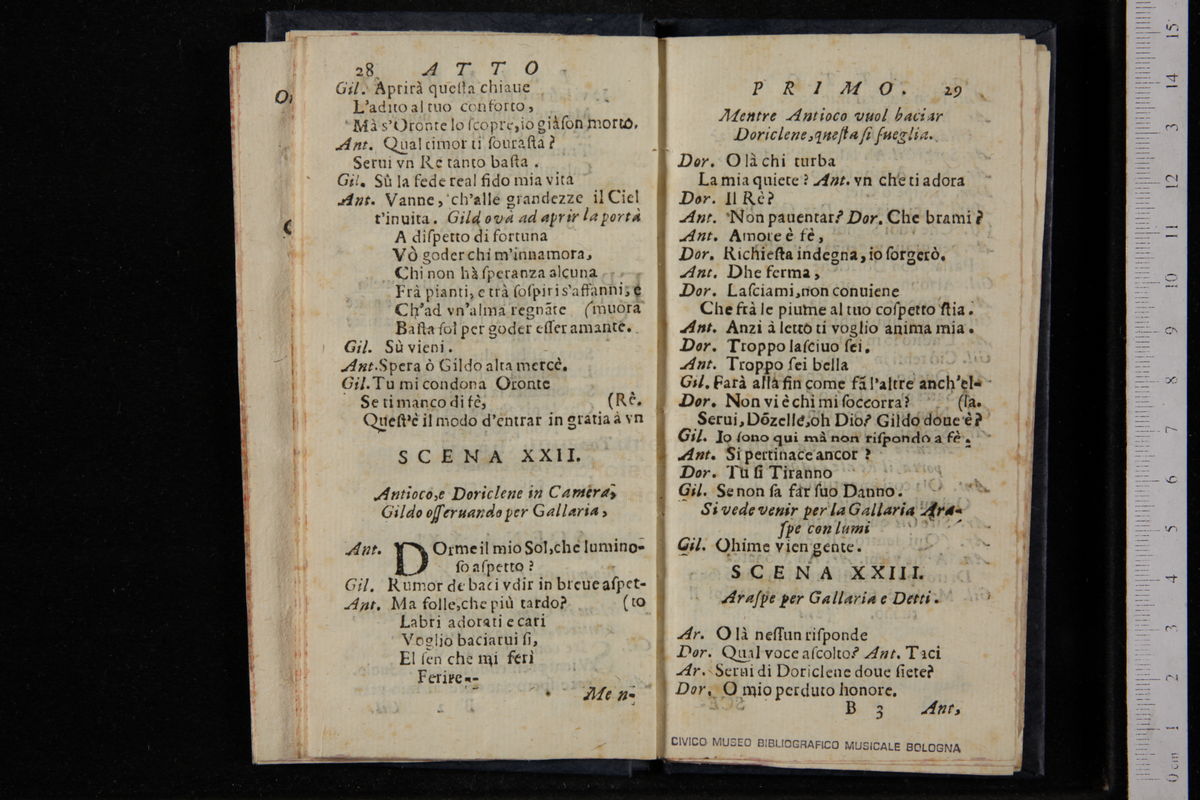 28 ATTO
Gil. Aprirà questa chiaue
L'adito al tuo conforto,
Mà s'Oronte lo scopre, io già son morto.
Ant. Qual timor ti sourasta?
Serui vn Re tanto basta.
Gil. Sù la fede real fido mia vita
Ant. Vanne, ch'alle grandezze il Ciel
t'inuita. Gildo và ad aprir la porta
A dispetto di fortuna
Vò goder chi m'innamora,
Chi non hà speranza alcuna
Frà pianti, e trà sospiri s'affanni, e
Ch'ad vn'alma regnãte (muora
Basta sol per goder esser amante.
Gil. Sù vieni.
Ant. Spera ò Gildo alta mercè.
Gil. Tu mi condona Oronte
Se ti manco di fè, (Rê.
Quest'è il modo d'entrar in gratia à vn
SCENA XXII.
Antioco, e Doriclene in Camera,
Gildo osseruando per Gallaria,
Ant. DOrme il mio Sol, che lumino-
so aspetto?
Gil. Rumor de baci vdir in breue aspet-
Ant. Ma folle, che più tardo? (to
Labri adorati e cari
Voglio baciarui sì,
El sen che mi ferì
Ferire--
Men-
PRIMO. 29
Mentre Antioco vuol baciar
Doriclene, questa si sueglia.
Dor. O là chi turba
La mia quiete? Ant. vn che ti adora
Dor. Il Rè?
Ant. Non pauentar? Dor. Che brami?
Ant. Amore è fè,
Dor. Richiesta indegna, io sorgerò.
Ant. Dhe ferma,
Dor. Lasciami, non conuiene
Che frà le piume al tuo cospetto stia.
Ant. Anzi à letto ti voglio anima mia.
Dor. Troppo lasciuo sei.
Ant. Troppo sei bella
Gil. Farà alla fin come fà l'altre anch'el-
Dor. Non vi è chi mi soccorra? (la.
Serui, Dõzelle, oh Dio? Gildo doue è?
Gil. Io sono qui mà non rispondo a fè.
Ant. Si pertinace ancor?
Dor. Tu sì Tiranno
Gil. Se non sa far suo Danno.
Si vede venir per la Gallaria Ara-
spe con lumi
Gil. Ohime vien gente.
SCENA XXIII.
Araspe per Gallaria e Detti.
Ar. O là nessun risponde
Dor. Qual voce ascolto? Ant. Taci
Ar. Serui di Doriclene doue siete?
Dor. O mio perduto honore.
B 3 Ant,
CIVICO MUSEO BIBLIOGRAFICO MUSICALE BOLOGNA